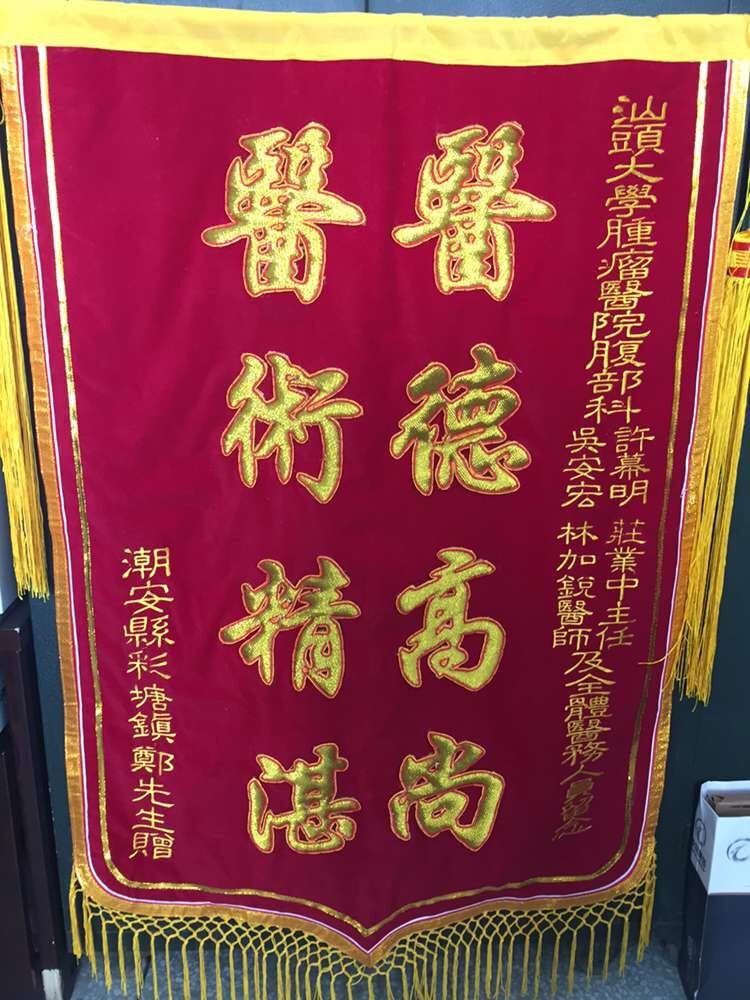 汕頭大學腫瘤醫院腹部科許幕明 莊業中主任
吳安宏 林加銳醫師及全體醫務人員
醫德高尚
醫術精湛
潮安縣彩塘鎮鄭先生贈